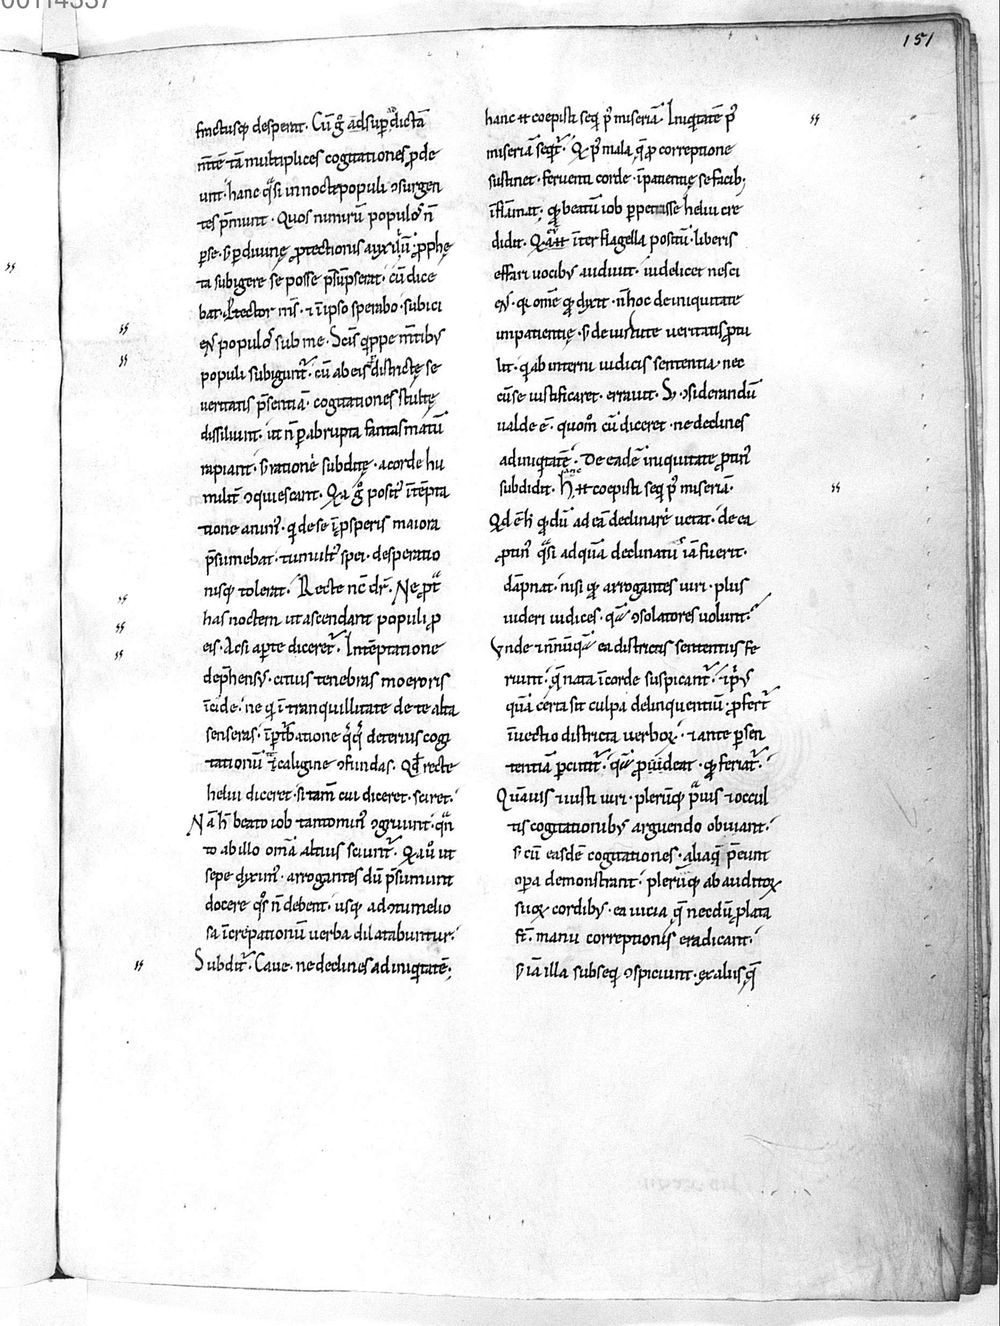 00114337
151
fructusq; desperat. Cū g̊ adsup dictā
m̄te tā multiplices cogitationes ꝓde
unt. hanc q̄si innocte populi ↄsurgen
tes p̄munt. Quos nimirū populos n̄
ꝑse. s; ꝑ diuinę ꝓtectionis auxiliū. ꝓphę
ta subigere se posse p̄sūpserat. cū dice
bat. Ptector m̄s. ⁊ īipso sperabo. subici
ens populos sub me. Scis q̄ppe m̄tib;
populi subigunt͛. cū ab eis districtę se
ueritatis p̄sentiā. cogitationes stultę
dissiliunt. ut n̄ ꝑabrupta fantasmatū
rapiant. s; rationi subditę. acorde hu
milit͛ ↄquiescant. Q̇a g̊ posit͛ ītēpta
tione anim͛. q̇ de se īꝓsperis maiora
p̄sumebat. tumult͛ spei. desperatio
nisq; tolerat. Recte nc̄ dr̄. Ne ꝓt̄
has noctem ut ascendant populi ꝓ
eis. Acsi aꝑte diceret͛. Intēptatione
dep̄hensus. citius tenebras moeroris
īcide. ne q̇ ītranquillitate de te alta
senseras. īꝑt͛batione q̇q̇ deterius cogi
tationū īcaligine ↄfundas. Qd̄ recte
heliu diceret. si tam̄ cui diceret. sciret.
Nā h̄ beato iob tantomin͛ ↄgruunt. q̄n
to ab illo om̄a altius sciunt͛. Q̇a u̇ ut
sepe dixim͛. arrogantes dū p̄sumunt
docere q̊s n̄ debent. usq; ad ↄtumelio
sa īcrepationū uerba dilatabuntur.
Subdit͛. Caue. ne declines ad iniq̇tatē.
hanc .n. coepisti seq̇ p͛ miseriā. Iniq̇tatē p͛
miseriā seq̇t͛. Q̇ p͛ mala q̄ ꝓ correptione
sustinet. feruenti corde. īpatientię se facib;
īflāmat. q̇ beatū iob ꝑpetrasse heliu cre
didit. Q̇a .n. īter flagella positū. liberis
effari uocib; audiuit. uidelicet nesci
ens. q̇ om̄e q̇ dixit. n̄ hoc de iniquitate
impatientię. s; de uirtute ueritatis ꝓtu
lit. q̇ ab interni iudicis sententia. nec
cū se iustificaret. errauit. S; ↄsiderandū
ualde ē. quom̊ cū diceret. ne declines
ad iniq̇tatē. De eadē iniquitate ꝓtin͛
subdidit. Hanc .n. coepisti seq̇ p͛ miseriā.
Qd ē h̄. q̇ dū ad eā declinare uetat. de ea
ꝓtin͛ q̄si ad quā declinatū iā fuerit.
dāpnat. nisi q̇ arrogantes uiri. plus
uideri iudices. q̄ ↄsolatores uolunt.
Vnde ⁊ nn̄ūq̄ ea districtis sententiis fe
riunt. q̄ nata īcorde suspicant͛. ⁊ p͛us
quā certa sit culpa delinquentiū. ꝓfert͛
īuectio districta uerboꝝ. ⁊ ante ꝑ sen
tentiā ꝑcutit͛. q̄ ꝓuideat. q̇ feriat͛.
Quāuis ⁊ iusti uiri. plerūq; p̄uis ⁊ occul
tis cogitationib; arguendo obuiant.
s; cū easdē cogitationes. aliaq̄ p̄eunt
oꝑa demonstrant. plerūq; ab auditoꝝ
suoꝝ cordib;. ea uicia q̄ necdū ꝓlata
st̄. manu correptionis eradicant.
s; iā illa subseq̇ ↄspiciunt. ex aliis q̄